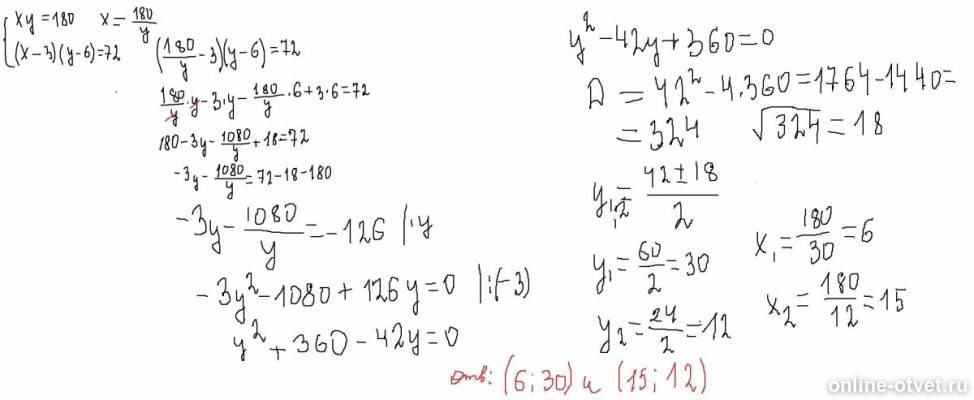 { xy = 180   x = 180/y
(x-3)(y-6)=72   (180/y - 3)(y-6)=72
180/y · y - 3·y - 180/y · 6 + 3·6 = 72
180 - 3y - 1080/y + 18 = 72
-3y - 1080/y = 72 - 18 - 180
-3y - 1080/y = -126 |·y
-3y² - 1080 + 126y = 0 |:(-3)
y² + 360 - 42y = 0
y² - 42y + 360 = 0
D = 42² - 4·360 = 1764 - 1440 =
= 324   √324 = 18
y₁,₂ = 42 ± 18 / 2
y₁ = 60/2 = 30   x₁ = 180/30 = 6
y₂ = 24/2 = 12   x₂ = 180/12 = 15
отв: (6; 30) и (15; 12)
online-otvet.ru